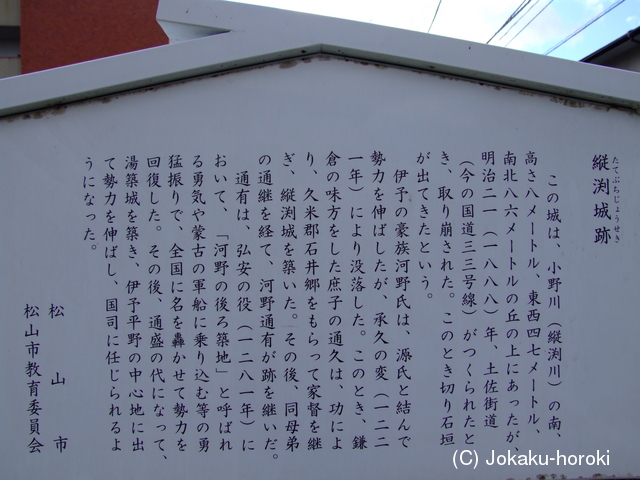 縦渕城跡
たてぶちじょうせき
この城は、小野川（縦渕川）の南、
高さ八メートル、東西四七メートル、
南北八六メートルの丘の上にあったが
明治二一（一八八八）年、土佐街道
（今の国道三三号線）がつくられたと
き、取り崩された。このとき切り石垣
が出てきたという。
伊予の豪族河野氏は、源氏と結んで
勢力を伸ばしたが、承久の変（一二二
一年）により没落した。このとき、鎌
倉の味方をした庶子の通久は、功によ
り、久米郡石井郷をもらって家督を継
ぎ、縦渕城を築いた。その後、同母弟
の通継を経て、河野通有が跡を継いだ。
通有は、弘安の役（一二八一年）に
おいて、「河野の後ろ築地」と呼ばれ
る勇気や蒙古の軍船に乗り込む等の勇
猛振りで、全国に名を轟かせて勢力を
回復した。その後、通盛の代になって、
湯築城を築き、伊予平野の中心地に出
て勢力を伸ばし、国司に任じられるよ
うになった。
松山市
松山市教育委員会
(C) Jokaku-horoki